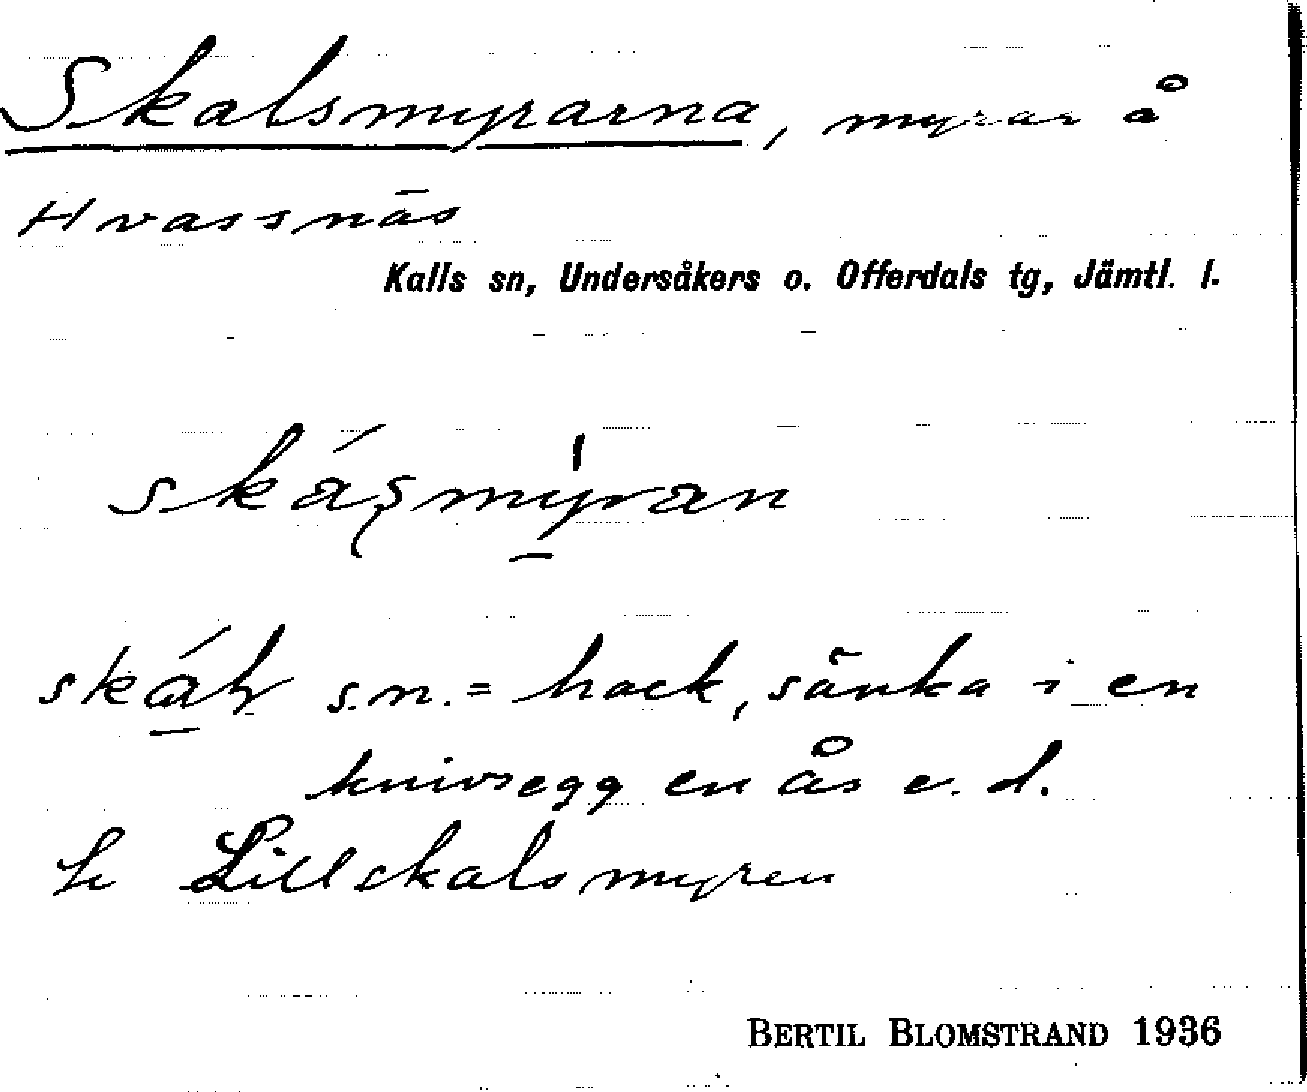 Skalsmyrarna, myrar å
Hvassnäs
Kalls sn, Undersåkers o. Offerdals tg, Jämtl. l.
skáʂmýran
s.n. = hack, sänka i en
knivsegg en ås e. d.
Lillskalsmyren
BERTIL BLOMSTRAND 1936